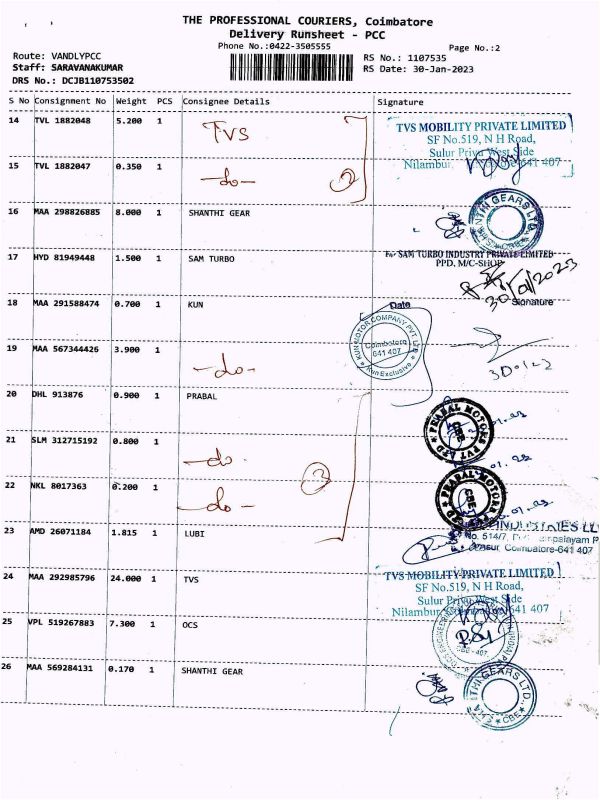 THE PROFESSIONAL COURIERS, Coimbatore
Delivery Runsheet - PCC
Phone No.:0422-3505555
Page No.:2
Route: VANDLYPCC
Staff: SARAVANAKUMAR
DRS No.: DCJB110753502
RS No.: 1107535
RS Date: 30-Jan-2023
S No Consignment No Weight PCS Consignee Details Signature
14 TVL 1882048 5.200 1 TVS
TVS MOBILITY PRIVATE LIMITED
SF No.519, N H Road,
Sulur Privu West Side
Nilambur, 641 407
15 TVL 1882047 0.350 1 -do- 2
16 MAA 298826885 8.000 1 SHANTHI GEAR
GEARS LTD.
17 HYD 81949448 1.500 1 SAM TURBO
For SAM TURBO INDUSTRY PRIVATE LIMITED
PPD. M/C-SHOP
30/01/2023
Signature
18 MAA 291588474 0.700 1 KUN
Date
KUN MOTOR COMPANY PVT LTD
Coimbatore
641 407
Kun Exclusive
19 MAA 567344426 3.900 1 -do-
20 DHL 913876 0.900 1 PRABAL
PRABAL MOTORS PVT LTD
CBE
21 SLM 312715192 0.800 1 -do-
22 NKL 8017363 0.200 1 -do- 3
PRABAL MOTORS
CBE
23 AMD 26071184 1.815 1 LUBI
INDUSTRIES LL
No. 514/7,
Coimbatore-641 407
24 MAA 292985796 24.000 1 TVS
TVS MOBILITY PRIVATE LIMITED
SF No.519, N H Road,
Sulur Privu West Side
Nilambur, 641 407
25 VPL 519267883 7.300 1 OCS
26 MAA 569284131 0.170 1 SHANTHI GEAR
GEARS LTD.
CBE